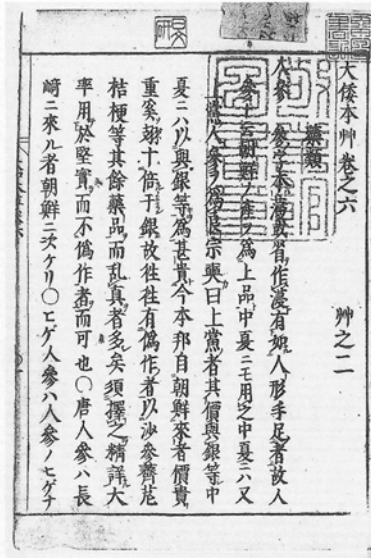 大倭本艸卷之六　艸之二
藥類
人參　參字本　或省作　有如人形手足者故人
參十云朝鮮ノ産ヲ爲上品中夏ニモ用之中夏ニハ又
上黨人參ヲ爲良宗奭曰上黨者其價與銀等中
夏ニハ以與銀等爲甚貴今本邦自朝鮮來者價貴
重奚翅十倍于銀故徃徃有僞作者以沙參薺苨
桔梗等其餘藥品而乱真者多矣須擇之精詳大
率用於堅實而不僞作者而可也○唐人參ハ長
﨑ニ來ル者朝鮮ニ次ケリ○ヒゲ人參ハ人參ノヒゲナ